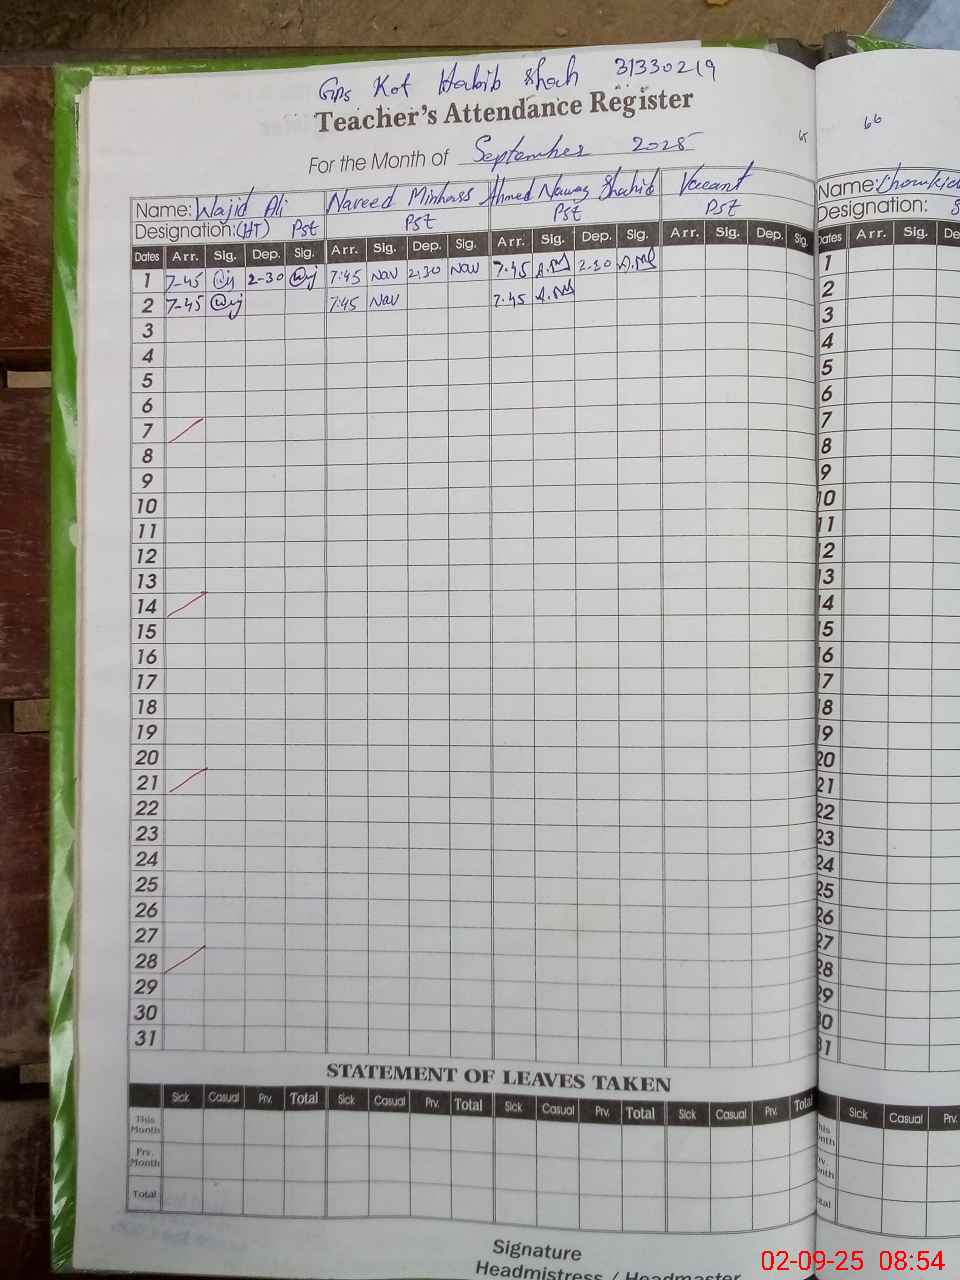 GPS Kot Habib Shah 31330219
Teacher's Attendance Register
66
For the Month of September 2025
Name: Wajid Ali Naveed Minhass Ahmed Nawaz Shahid Vacant
Designation: (HT) Pst Pst Pst Pst
Name: Chowkid
Designation:
Dates Arr. Sig. Dep. Sig. Arr. Sig. Dep. Sig. Arr. Sig. Dep. Sig. Arr. Sig. Dep. Sig. Dates Arr. Sig. De
1 7-45 2-30 7:45 Nav 2:30 Nav 7.45 2.30 1
2 7-45 7:45 Nav 7.45 2
3 3
4 4
5 5
6 6
7 7
8 8
9 9
10 10
11 11
12 12
13 13
14 14
15 15
16 16
17 17
18 18
19 19
20 20
21 21
22 22
23 23
24 24
25 25
26 26
27 27
28 28
29 29
30 30
31 31
STATEMENT OF LEAVES TAKEN
Sick Casual Prv. Total Sick Casual Prv. Total Sick Casual Prv. Total Sick Casual Prv. Total Sick Casual Prv.
This Month
Prv. Month
Total
Signature
Headmistress / Headmaster
02-09-25 08:54